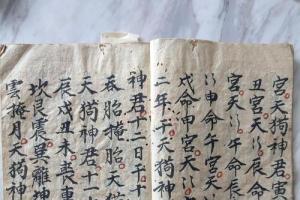 宮天狗神君寅
丑宮天〻辰命
宮天〻午命辰
〻申命午宮天
戌命申宮天〻
二年十天狗神
神君十二日十
吞胎掩胎天狗
天狗神君十一
辰戌丑未喪
坎艮震巽離坤
雲掩月天狗神